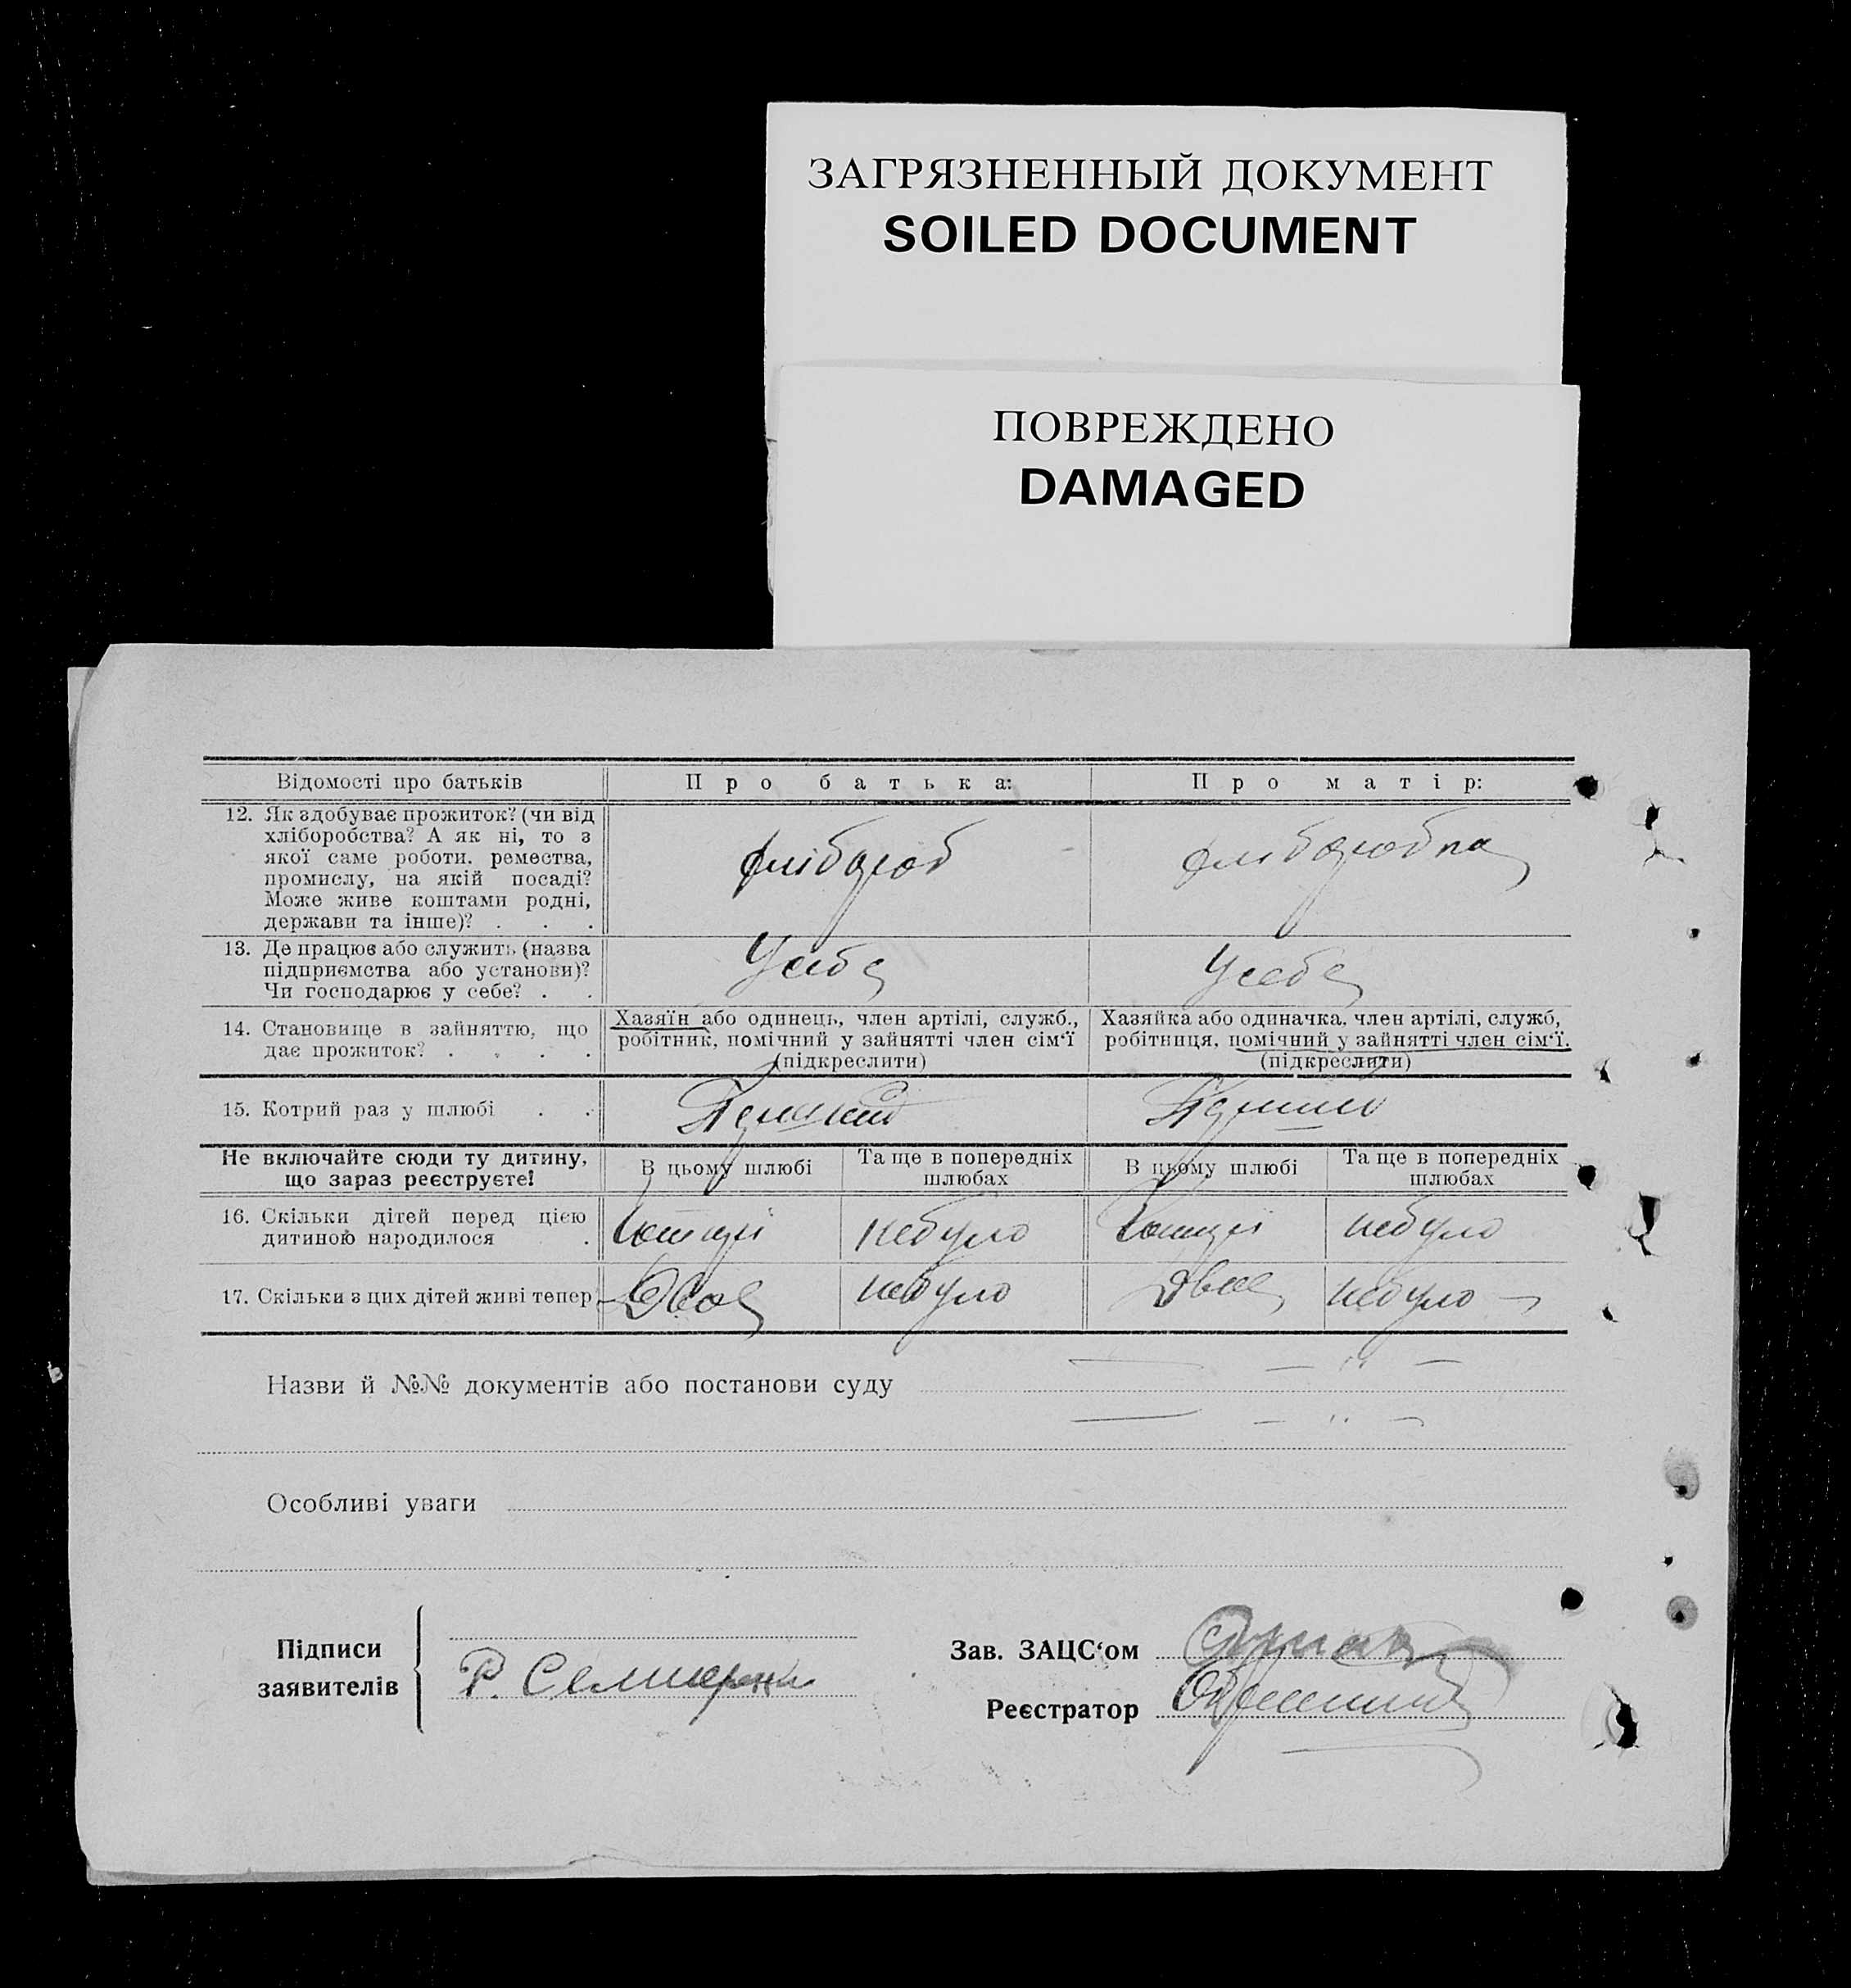 ЗАГРЯЗНЕННЫЙ ДОКУМЕНТ
SOILED DOCUMENT
ПОВРЕЖДЕНО
DAMAGED
Відомості про батьків
Про батька:
Про матір:
12. Як здобуває прожиток? (чи від
хліборобства? А як ні, то з
якої саме роботи. ремества,
промислу, на якій посаді?
Може живе коштами родні,
держави та інше)? . . .
хлібороб
хліборобка
13. Де працює або служить (назва
підприємства або установи)?
Чи господарює у себе? . .
У себе
У себе
14. Становище в зайняттю, що
дає прожиток? . . . .
Хазяїн або одинець, член артілі, служб.,
робітник, помічний у зайнятті член сім‘ї
(підкреслити)
Хазяйка або одиначка, член артілі, служб,
робітниця, помічний у зайнятті член сім‘ї.
(підкреслити)
15. Котрий раз у шлюбі . .
Не включайте сюди ту дитину,
що зараз реєструєте!
В цьому шлюбі
Та ще в попередніх
шлюбах
В цьому шлюбі
Та ще в попередніх
шлюбах
16. Скільки дітей перед цією
дитиною народилося .
небуло
небуло
17. Скільки з цих дітей живі тепер
Двое
небуло
двое
небуло
Назви й №№ документів або постанови суду
Особливі уваги
Підписи
заявителів
Р.
Зав. ЗАЦС‘ом
Реєстратор